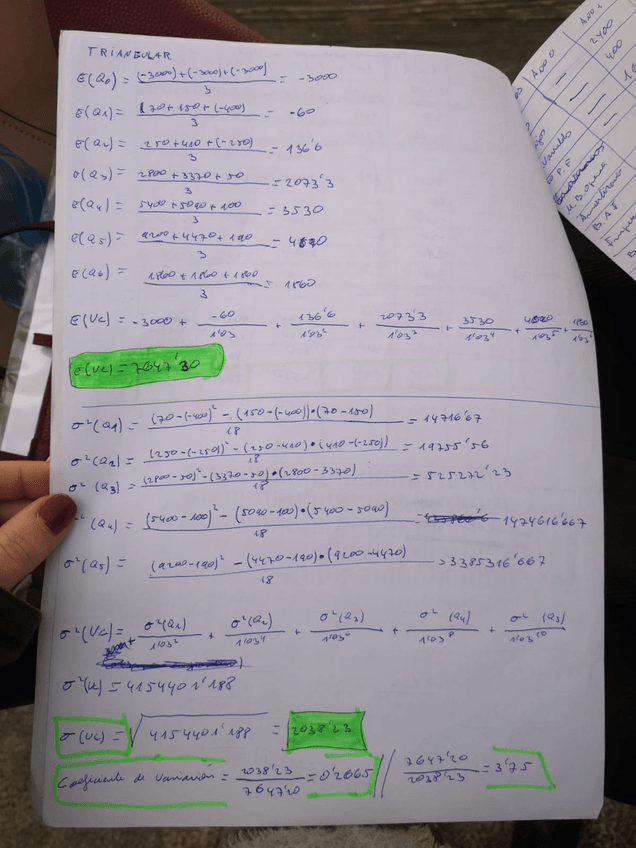 TRIANGULAR
E(Q0) = (-3000)+(-3000)+(-3000) / 3 = -3000
E(Q1) = 70+150+(-400) / 3 = -60
E(Q2) = 250+410+(-250) / 3 = 136'6
E(Q3) = 2800+3370+50 / 3 = 2073'3
E(Q4) = 5400+5090+100 / 3 = 3530
E(Q5) = 9200+4470+190 / 3 =
E(Q6) = 1860+1860+1860 / 3 = 1860
E(VC) = -3000 + -60 / 1'03 + 136'6 / 1'03² + 2073'3 / 1'03³ + 3530 / 1'03⁴ + / 1'03⁵ +
E(VC) = 7647'30
σ²(Q1) = (70-(-400)² - (150-(-400))•(70-150) / 18 = 14716'67
σ²(Q2) = (250-(-250)² - (250-410)•(410-(-250)) / 18 = 19755'56
σ²(Q3) = (2800-50)²-(3370-50)•(2800-3370) / 18 = 525272'23
σ²(Q4) = (5400-100)² - (5090-100)•(5400-5090) / 18 = 1474616'667
σ²(Q5) = (9200-190)² - (4470-190)•(9200-4470) / 18 = 3385316'667
σ²(VC) = σ²(Q1) / 1'03² + σ²(Q2) / 1'03⁴ + σ²(Q3) / 1'03⁶ + σ²(Q4) / 1'03⁸ + σ²(Q5) / 1'03¹⁰
σ²(VC) = 4154401'188
σ(VC) = √4154401'188 = 2038'23
Coeficiente de Variación = 2038'23 / 7647'20 = 0'2665 // 7647'20 / 2038'23 = 3'75
AÑO 0
AÑO 1
2400
400
Variables